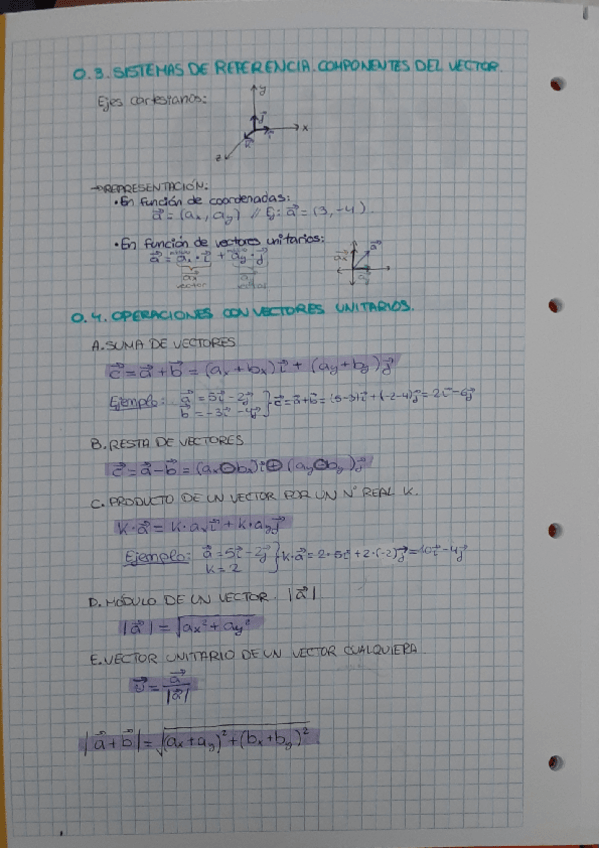 0.3. SISTEMAS DE REFERENCIA. COMPONENTES DEL VECTOR.
Ejes cartesianos:
y
j⃗
x
i⃗
k⃗
z
→REPRESENTACIÓN:
• En función de coordenadas:
a⃗ = (ax, ay) // Ej: a⃗ = (3, -4)
• En función de vectores unitarios:
a⃗ = ax · i⃗ + ay · j⃗
a⃗x
vector
0.4. OPERACIONES CON VECTORES UNITARIOS.
A. SUMA DE VECTORES
c⃗ = a⃗ + b⃗ = (ax + bx) i⃗ + (ay + by) j⃗
Ejemplo: a⃗ = 5i⃗ - 2j⃗
b⃗ = -3i⃗ - 4j⃗ } c⃗ = a⃗ + b⃗ = (5-3)i⃗ + (-2-4)j⃗ = 2i⃗ - 6j⃗
B. RESTA DE VECTORES
c⃗ = a⃗ - b⃗ = (ax ⊖ bx) i⃗ ⊕ (ay ⊖ by) j⃗
C. PRODUCTO DE UN VECTOR POR UN Nº REAL K.
k · a⃗ = k · ax i⃗ + k · ay j⃗
Ejemplo: a⃗ = 5i⃗ - 2j⃗
k = 2 } k · a⃗ = 2 · 5i⃗ + 2 · (-2)j⃗ = 10i⃗ - 4j⃗
D. MÓDULO DE UN VECTOR |a⃗|
|a⃗| = √(ax² + ay²)
E. VECTOR UNITARIO DE UN VECTOR CUALQUIERA
u⃗ = a⃗ / |a⃗|
|a⃗ + b⃗| = √((ax + ay)² + (bx + by)²)